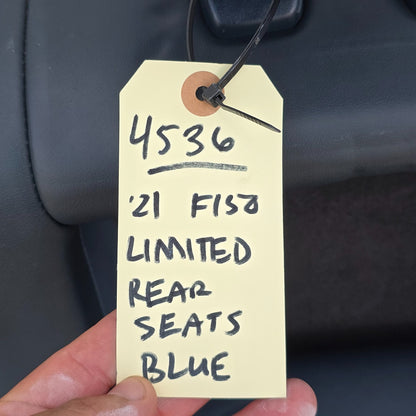 4536
'21 F150
LIMITED
REAR
SEATS
BLUE